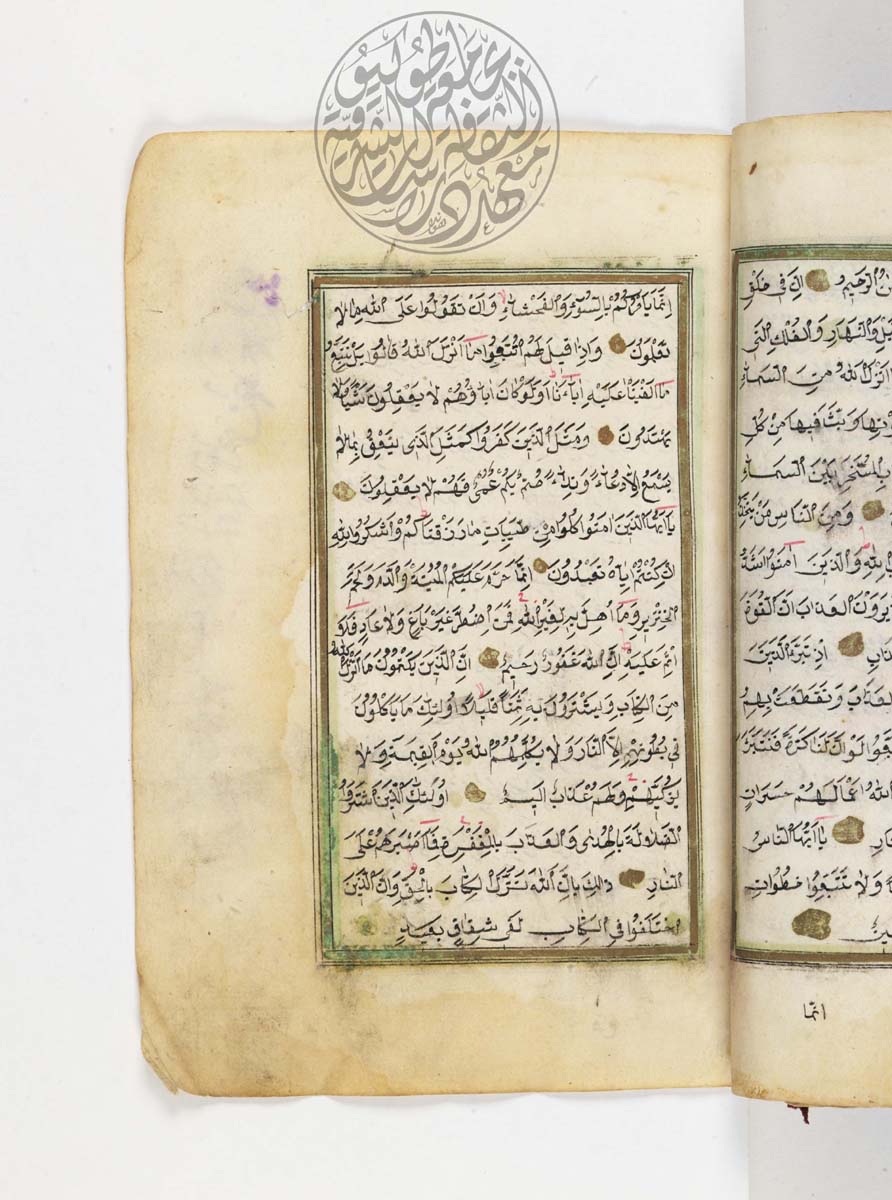 اِنَّمَا يَأمُرُكُمْ بِالسُّوۤءِ وَالفَحْشَاۤءِ وَاَنْ تَقُولُوا عَلَى اللّٰهِ مَا لَا
تَعْلَمُونَ وَاِذَا قِيلَ لَهُمُ اتَّبِعُوا مَا اَنْزَلَ اللّٰهُ قَالُوا بَلْ نَتَّبِعُ
مَا اَلْفَيْنَا عَلَيْهِ اٰبَاۤءَنَا اَوَلَوْ كَانَ اٰبَاؤُهُمْ لَا يَعْقِلُونَ شَيْئًا وَلَا
يَهْتَدُونَ وَمَثَلُ الَّذِينَ كَفَرُوا كَمَثَلِ الَّذِي يَنْعِقُ بِمَا لَا
يَسْمَعُ اِلَّا دُعَاۤءً وَنِدَاۤءً صُمٌّ بُكْمٌ عُمْيٌ فَهُمْ لَا يَعْقِلُونَ
يَا اَيُّهَا الَّذِينَ اٰمَنُوا كُلُوا مِنْ طَيِّبَاتِ مَا رَزَقْنَاكُمْ وَاشْكُرُوا لِلّٰهِ
اِنْ كُنْتُمْ اِيَّاهُ تَعْبُدُونَ اِنَّمَا حَرَّمَ عَلَيْكُمُ الْمَيْتَةَ وَالدَّمَ وَلَحْمَ
الْخِنْزِيرِ وَمَا اُهِلَّ بِهِ لِغَيْرِ اللّٰهِ فَمَنِ اضْطُرَّ غَيْرَ بَاغٍ وَلَا عَادٍ فَلَا
اِثْمَ عَلَيْهِ اِنَّ اللّٰهَ غَفُورٌ رَحِيمٌ اِنَّ الَّذِينَ يَكْتُمُونَ مَا اَنْزَلَ اللّٰهُ
مِنَ الْكِتَابِ وَيَشْتَرُونَ بِهِ ثَمَنًا قَلِيلًا اُولٰئِكَ مَا يَاْكُلُونَ
فِي بُطُونِهِمْ اِلَّا النَّارَ وَلَا يُكَلِّمُهُمُ اللّٰهُ يَوْمَ الْقِيٰمَةِ وَلَا
يُزَكِّيهِمْ وَلَهُمْ عَذَابٌ اَلِيمٌ اُولٰئِكَ الَّذِينَ اشْتَرَوُا
الضَّلَالَةَ بِالْهُدٰى وَالْعَذَابَ بِالْمَغْفِرَةِ فَمَا اَصْبَرَهُمْ عَلَى
النَّارِ ذٰلِكَ بِاَنَّ اللّٰهَ نَزَّلَ الْكِتَابَ بِالْحَقِّ وَاِنَّ الَّذِينَ
اخْتَلَفُوا فِي الْكِتَابِ لَفِي شِقَاقٍ بَعِيدٍ
الرَّحِيمُ اِنَّ فِي خَلْقِ
وَالنَّهَارِ وَالْفُلْكِ الَّتِي
اَنْزَلَ اللّٰهُ مِنَ السَّمَاۤءِ
وَبَثَّ فِيهَا مِنْ كُلِّ
الْمُسَخَّرِ بَيْنَ السَّمَاۤءِ
وَمِنَ النَّاسِ مَنْ يَتَّخِذُ
وَالَّذِينَ اٰمَنُوا اَشَدُّ
يَرَوْنَ الْعَذَابَ اَنَّ الْقُوَّةَ
اِذْ تَبَرَّاَ الَّذِينَ
وَتَقَطَّعَتْ بِهِمُ
لَوْ اَنَّ لَنَا كَرَّةً فَنَتَبَرَّاَ
اللّٰهُ اَعْمَالَهُمْ حَسَرَاتٍ
يَا اَيُّهَا النَّاسُ
وَلَا تَتَّبِعُوا خُطُوَاتِ
انما